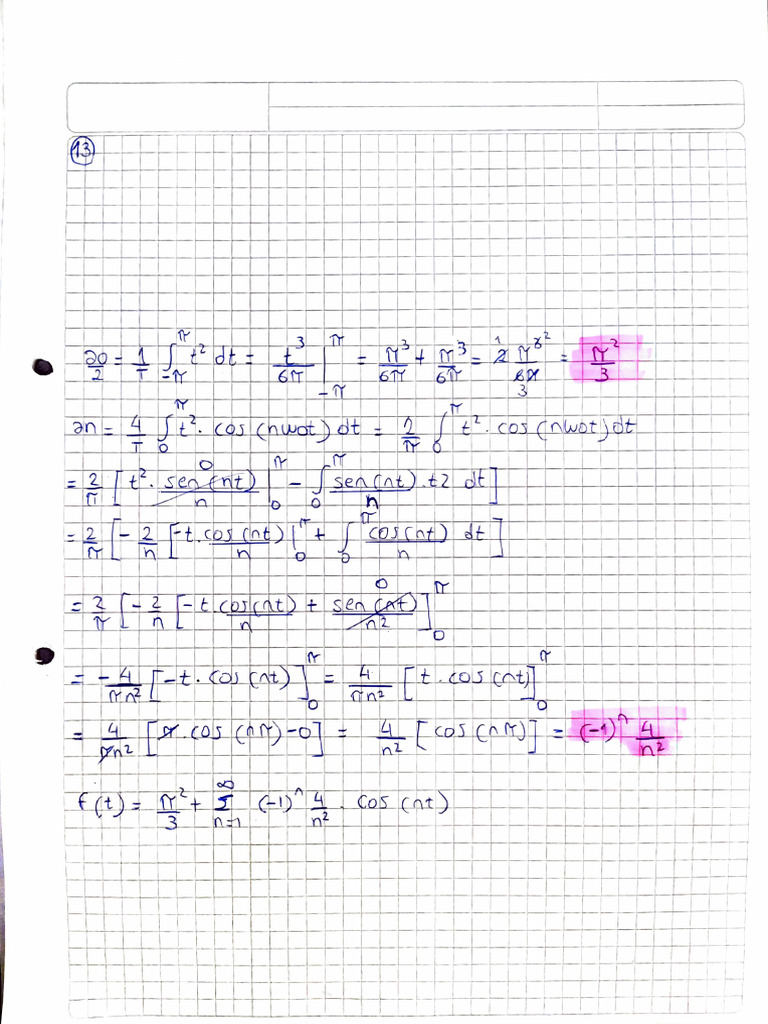 13
a0/2 = 1/T ∫_{-π}^{π} t² dt = t³/6π |_{-π}^{π} = π³/6π + π³/6π = 2π³/6π = π²/3
an = 4/T ∫_0^π t² · cos(nwot) dt = 2/π ∫_0^π t² · cos(nwot) dt
= 2/π [ t² · sen(nt)/n |_0^π - ∫_0^π sen(nt)/n · t2 dt ]
= 2/π [ -2/n [ -t · cos(nt)/n |_0^π + ∫_0^π cos(nt)/n dt ]
= 2/π [ -2/n [ -t · cos(nt)/n + sen(nt)/n² ]_0^π
= -4/πn² [ -t · cos(nt) ]_0^π = 4/πn² [ t · cos(nt) ]_0^π
= 4/πn² [ π · cos(nπ) - 0 ] = 4/n² [ cos(nπ) ] = (-1)ⁿ 4/n²
f(t) = π²/3 + Σ_{n=1}^{∞} (-1)ⁿ 4/n² · cos(nt)